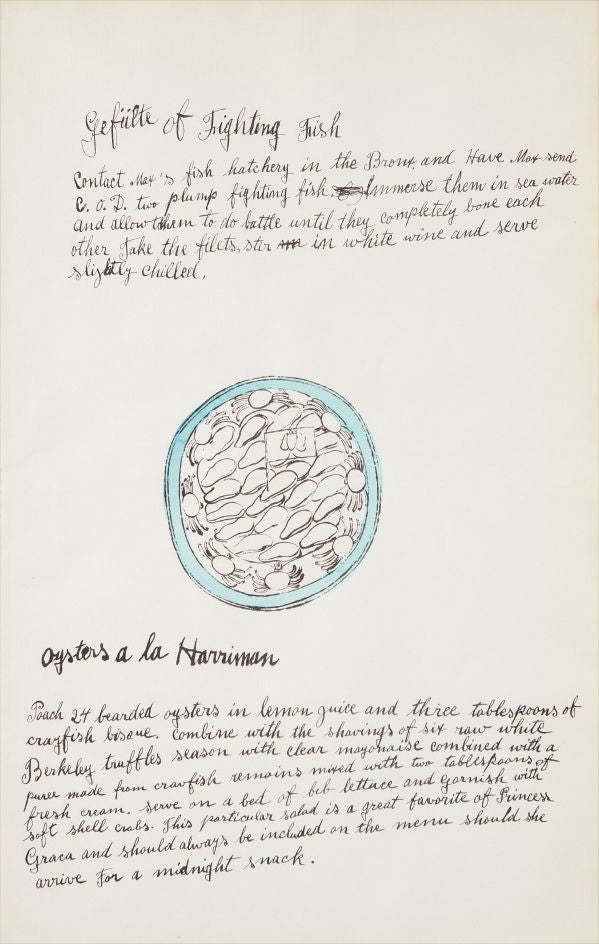 Gefülte of Fighting Fish
Contact Max's fish hatchery in the Bronx and Have Max send
C.O.D. two plump fighting fish. Immerse them in sea water
and allow them to do battle until they completely bone each
other Take the filets, stir in in white wine and serve
slightly chilled.
oysters a la Harriman
Poach 24 bearded oysters in lemon juice and three tablespoons of
crayfish bisque. Combine with the shavings of six raw white
Berkeley truffles season with clear mayonaise combined with a
puree made from crawfish remains mixed with two tablespoons of
fresh cream. serve on a bed of beb lettuce and garnish with
soft shell crabs. This particular salad is a great favorite of Princess
Graca and should always be included on the menu should she
arrive for a midnight snack.